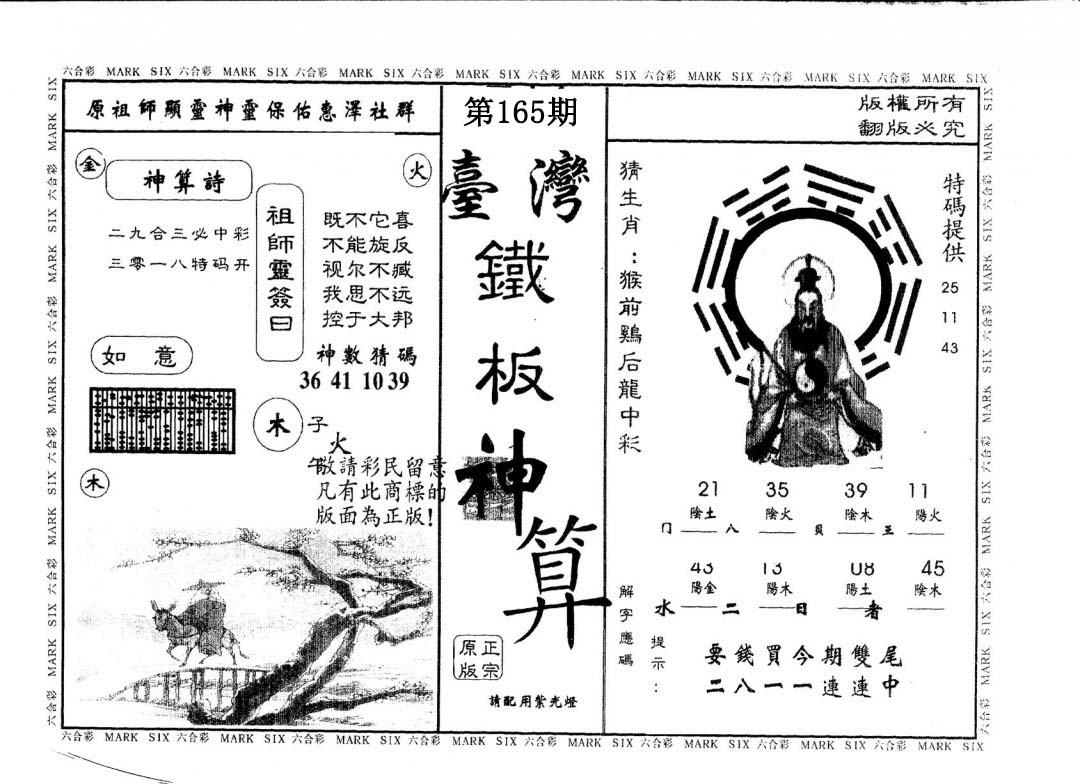 六合彩 MARK SIX 六合彩 MARK SIX 六合彩 MARK SIX 六合彩 MARK SIX 六合彩 MARK SIX 六合彩 MARK SIX 六合彩 MARK SIX 六合彩 MARK SIX
原祖師顯靈神靈保佑惠澤社群
金
火
神算詩
二九合三必中彩
三零一八特码开
祖師靈簽曰
既不它喜
不能旋反
视尔不臧
我思不远
控于大邦
神數猜碼
36 41 10 39
如意
木
子
火
午
敬請彩民留意
凡有此商標的
版面為正版!
木
第165期
臺灣
鐵
板
神
算
正宗
原版
請配用紫光燈
版權所有
翻版必究
猜生肖:猴前鷄后龍中彩
特碼提供
25
11
43
21 35 39 11
陰土 陰火 陰木 陽火
冂 八 貝 王
43 13 08 45
陽金 陽木 陽土 陰木
水 二 日 者
解字應碼
提示:
要錢買今期雙尾
二八一一連連中
六合彩 MARK SIX 六合彩 MARK SIX 六合彩 MARK SIX 六合彩 MARK SIX 六合彩 MARK SIX 六合彩 MARK SIX 六合彩 MARK SIX 六合彩 MARK SIX